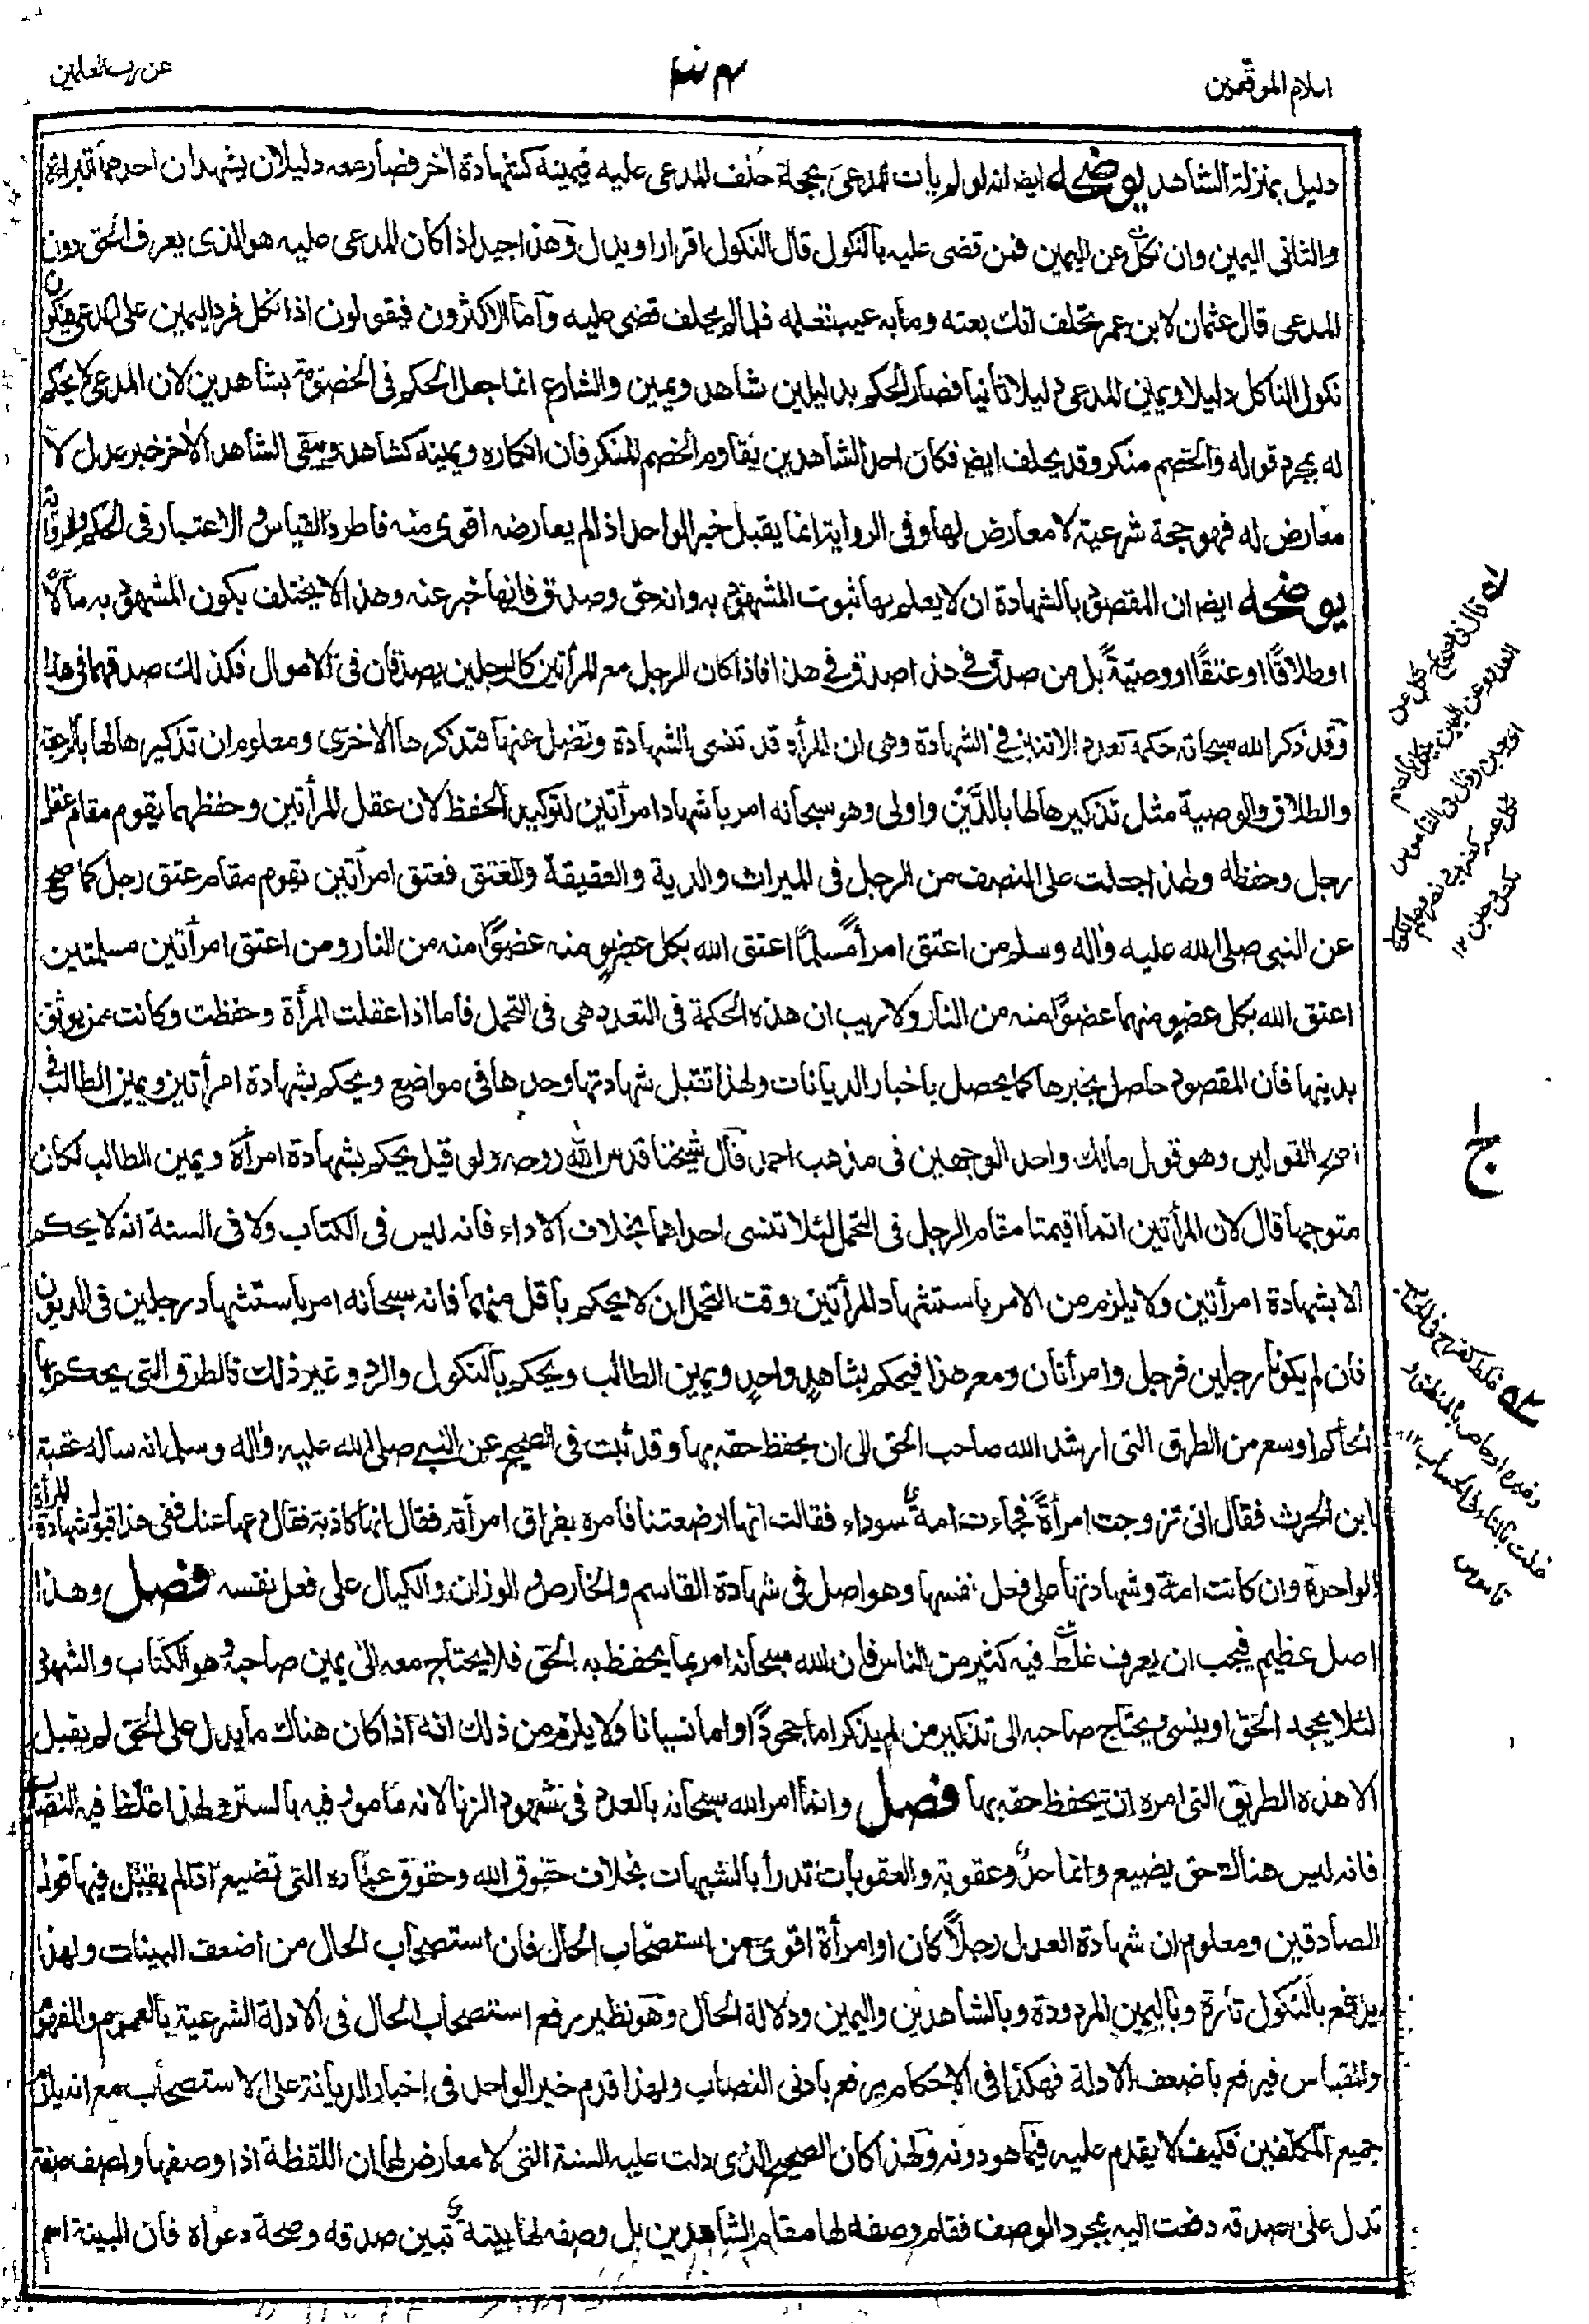 اعلام الموقعين
عن رب العلمين
دليل بمنزلة الشاهد يوضحه ايضا انه لو لم يات المدعى بحجة حلف المدعى عليه فيمينه كشهادة اخر فصار معه دليلان يشهدان احدهما البراءة
والثانى اليمين وان نكل عن اليمين فمن قضى عليه بالنكول قال النكول اقرار او بدل وهذا جيد اذا كان المدعى عليه هو الذى يعرف الحق دون
المدعى قال عثمان لابن عمر تحلف انك بعته وما به عيب تعلمه فلما لم يحلف قضى عليه واما الاكثرون فيقولون اذا نكل فرد اليمين على المدعى فيكون
نكول الناكل دليلا ويمين المدعى دليلا ثانيا فصار الحكم بدليلين شاهد ويمين والشارع انما جعل الحكم فى الخصومة بشاهدين لان المدعى لا يحكم
له بمجرد قوله والخصم منكر وقد يحلف ايضا فكان احد الشاهدين يقاوم الخصم المنكر فان انكاره ويمينه كشاهد ويبقى الشاهد الاخر خبر عدل لا
معارض له فهو حجة شرعية لا معارض لها وفى الرواية انما يقبل خبر الواحد اذا لم يعارضه اقوى منه فاطرد القياس والاعتبار فى الحكم والرواية
يوضحه ايضا ان المقصود بالشهادة ان لا يعلم بها ثبوت المشهود به وانه حق وصدق فانها خبر عنه وهذا لا يختلف بكون المشهود به مالا
او طلاقا او عتقا او وصية بل من صدق فى هذا صدق فى هذا فاذا كان الرجل مع المرأتين كالرجلين يصدقان فى الاموال فكذلك صدقهما فى هذا
وقد ذكر الله سبحانه حكمة تعدد الاثنتين فى الشهادة وهى ان المرأة قد تنسى الشهادة وتضل عنها فتذكرها الاخرى ومعلوم ان تذكيرها لها بالرجعة
والطلاق والوصية مثل تذكيرها لها بالدَّيْن واولى وهو سبحانه امر باشهاد امرأتين لتوكيد الحفظ لان عقل المرأتين وحفظهما يقوم مقام عقل
رجل وحفظه ولهذا جعلت على النصف من الرجل فى الميراث والدية والعقيقة والعتق فعتق امرأتين يقوم مقام عتق رجل كما صح
عن النبى صلى الله عليه واله وسلم من اعتق امرأ مسلما اعتق الله بكل عضو منه عضوا منه من النار ومن اعتق امرأتين مسلمتين
اعتق الله بكل عضو منهما عضوا منه من النار ولا ريب ان هذه الحكمة فى التعدد هى فى التحمل فاما اذا عقلت المرأة وحفظت وكانت ممن يوثق
بدينها فان المقصود حاصل بخبرها كما يحصل باخبار الديانات ولهذا تقبل شهادتها وحدها فى مواضع ويحكم بشهادة امرأتين ويمين الطالب فى
اصح القولين وهو قول مالك واحد الوجهين فى مذهب احمد قال شيخنا قدس الله روحه ولو قيل يحكم بشهادة امرأة ويمين الطالب لكان
متوجها قال لان المرأتين انما اقيمتا مقام الرجل فى التحمل لئلا تنسى احداهما بخلاف الاداء فانه ليس فى الكتاب ولا فى السنة انه لا يحكم
الا بشهادة امرأتين ولا يلزم من الامر باستشهاد المرأتين وقت التحمل ان لا يحكم باقل منهما فانه سبحانه امر باستشهاد رجلين فى الديون
فان لم يكونا رجلين فرجل وامرأتان ومع هذا فيحكم بشاهد واحد ويمين الطالب ويحكم بالنكول والرد وغير ذلك فالطرق التى يحكم بها
الحاكم اوسع من الطرق التى ارشد الله صاحب الحق الى ان يحفظ حقه بها وقد ثبت فى الصحيح عن النبى صلى الله عليه واله وسلم انه ساله عقبة
ابن الحرث فقال انى تزوجت امرأة فجاءت امة سوداء فقالت انها ارضعتنا فامره بفراق امرأته فقال انها كاذبة فقال دعها عنك ففى هذا قبول شهادة المرأة
الواحدة وان كانت امة وشهادتها على فعل نفسها وهو اصل فى شهادة القاسم والخارص والوزان والكيال على فعل نفسه فصل وهذا
اصل عظيم فيجب ان يعرف غلط فيه كثير من الناس فان الله سبحانه امر بما يحفظ به الحق فلا يحتاج معه الى يمين صاحبه وهو الكتاب والشهود
لئلا يجحد الحق او ينسى ويحتاج صاحبه الى تذكير من لم يذكر اما جحودا واما نسيانا ولا يلزم من ذلك انه اذا كان هناك ما يدل على الحق لم يقبل
الا هذه الطريق التى امره ان يحفظ حقه بها فصل وانما امر الله سبحانه بالعدد فى شهود الزنا لانه مامور فيه بالستر ولهذا غلظ فيه النصاب
فانه ليس هناك حق يضيع وانما حد وعقوبة والعقوبات تدرأ بالشبهات بخلاف حقوق الله وحقوق عباده التى تضيع اذا لم يقبل فيها قول
الصادقين ومعلوم ان شهادة العدل رجلا كان او امرأة اقوى من استصحاب الحال فان استصحاب الحال من اضعف البينات ولهذا
يدفع بالنكول تارة وباليمين المردودة وبالشاهدين واليمين ودلالة الحال وهو نظير رفع استصحاب الحال فى الادلة الشرعية بالعموم والمفهوم
والقياس فيرفع باضعف الادلة فهكذا فى الاحكام يرفع بادنى النصاب ولهذا قدم خبر الواحد فى اخبار الديانة على الاستصحاب مع انه يلزم
جميع المكلفين فكيف لا يقدم عليه فيما هو دونه ولهذا كان الصحيح الذى دلت عليه السنة التى لا معارض لها ان اللقطة اذا وصفها واصف صفة
تدل على صدقه دفعت اليه بمجرد الوصف فقام وصفه لها مقام الشاهدين بل وصفه لها بينة تبين صدقه وصحة دعواه فان البينة اسم